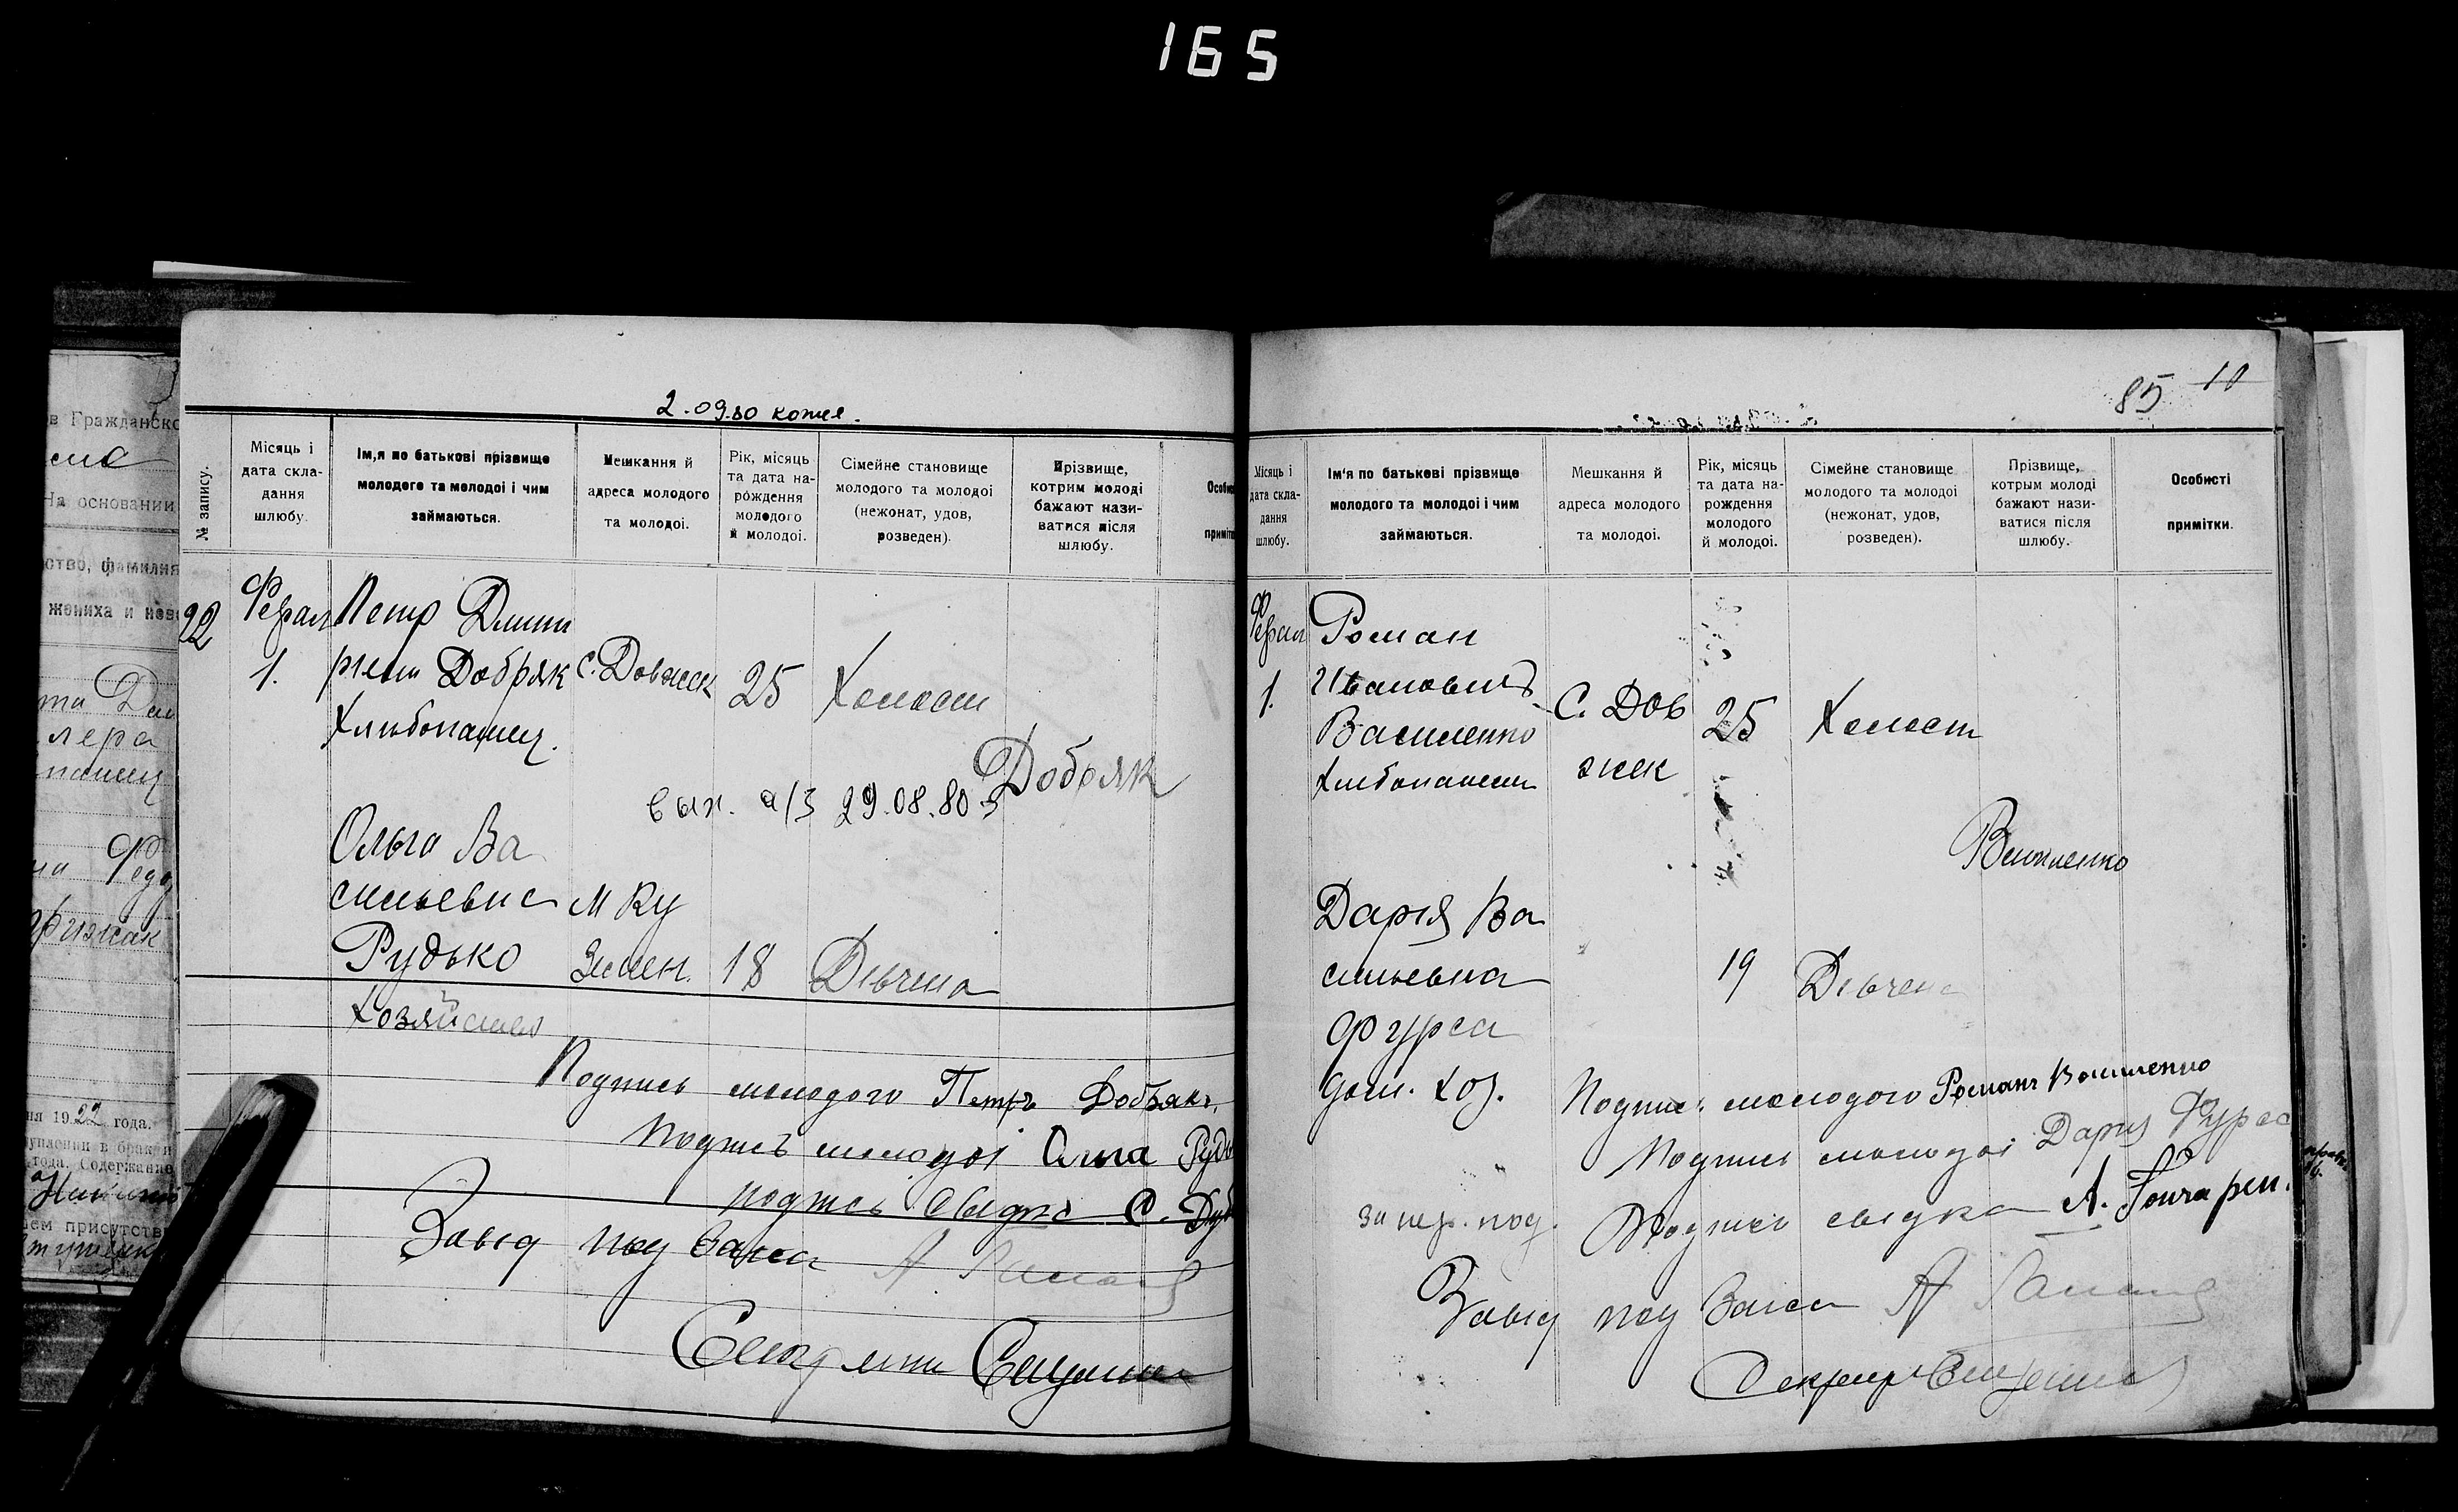 165
в Гражданско
На основании
ство, фамилия
жениха и нев
лера
ня 1922 года.
года. Содержание
ем присутств
2.09.80 копия.
№ запису.
Місяць і
дата скла-
дання
шлюбу.
Ім,я по батькові прізвище
молодого та молодоі і чим
займаються.
Мешкання й
адреса молодого
та молодоі.
Рік, місяць
та дата на-
рождення
молодого
й молодоі.
Сімейне становище
молодого та молодоі
(нежонат, удов,
розведен).
Прізвище,
котрим молоді
бажают нази-
ватися після
шлюбу.
Особи
приміт
22
Феврал
1.
Петр Дмит
риев Добряк
Хлибопашец.
с. Довжек
25
Холост
Добряк
вып. а/з 29.08.80
Ольга Ва
сильевна
Рудько
Хозяйство
М Ку
земен.
18
Дівчена
Подпись молодого Петръ Добрякъ
Подпись молодоі Ольга Рудь
подпись свидка С. Дуб
Завід под Загса
85 10
Місяць і
дата скла-
дання
шлюбу.
Ім'я по батькові прізвище
молодого та молодоі і чим
займаються.
Мешкання й
адреса молодого
та молодоі.
Рік, місяць
та дата на-
рождення
молодого
й молодоі.
Сімейне становище
молодого та молодоі
(нежонат, удов,
розведен).
Прізвище,
котрым молоді
бажают нази-
ватися після
шлюбу.
Особисті
примітки.
Феврал
1.
Роман
Иванович
Василенко
Хлибопашец
С. Дов
жек
25
Холост
Василенко
Дарія Ва
сильевна
Фурса
дом. хоз.
19
Дівчена
Подпись молодого Романъ Василенко
Подпись молодоі Дарія Фурса
Подпись свидка А. Гончарен.
Завід под Загса А
Секрет